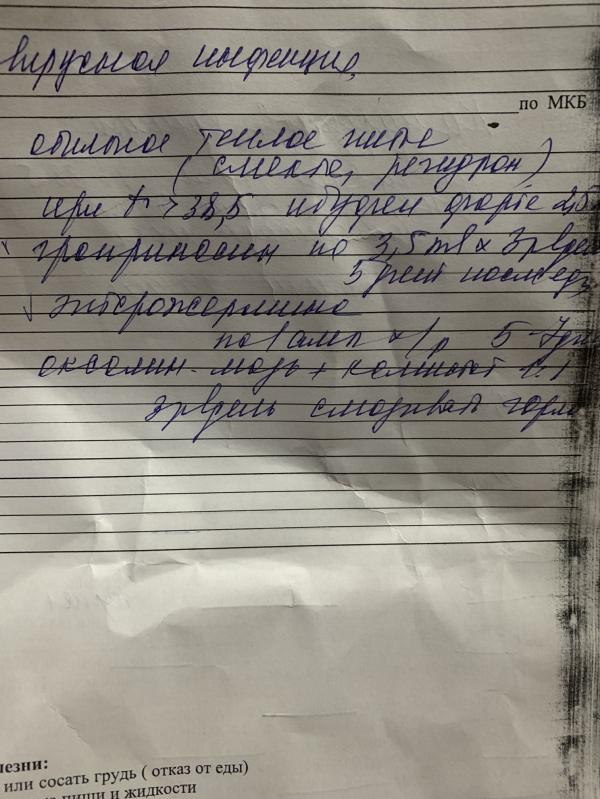 вирусная инфекция,
по МКБ
обильное теплое питье
(смекта, регидрон)
при t° >38,5 ибуфен форте 2,5
гроприносин по 3,5 ml x 3 р/день
5 дней
энтерожермина
по 1 амп x 1 р 5-7 дн
оксолин. мазь + каметон
3 р/день смазывать горло
лезни:
или сосать грудь ( отказ от еды)
пищи и жидкости